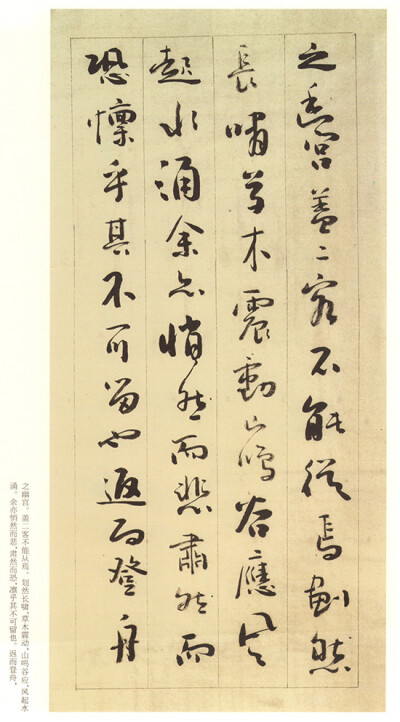 之幽宮蓋二客不能從焉劃然
長嘯草木震動山鳴谷應風
起水涌余亦悄然而悲肅然而
恐懍乎其不可留也返而登舟
之幽宫。盖二客不能从焉。划然长啸，草木震动，山鸣谷应，风起水
涌。余亦悄然而悲，肃然而恐，凛乎其不可留也。返而登舟，